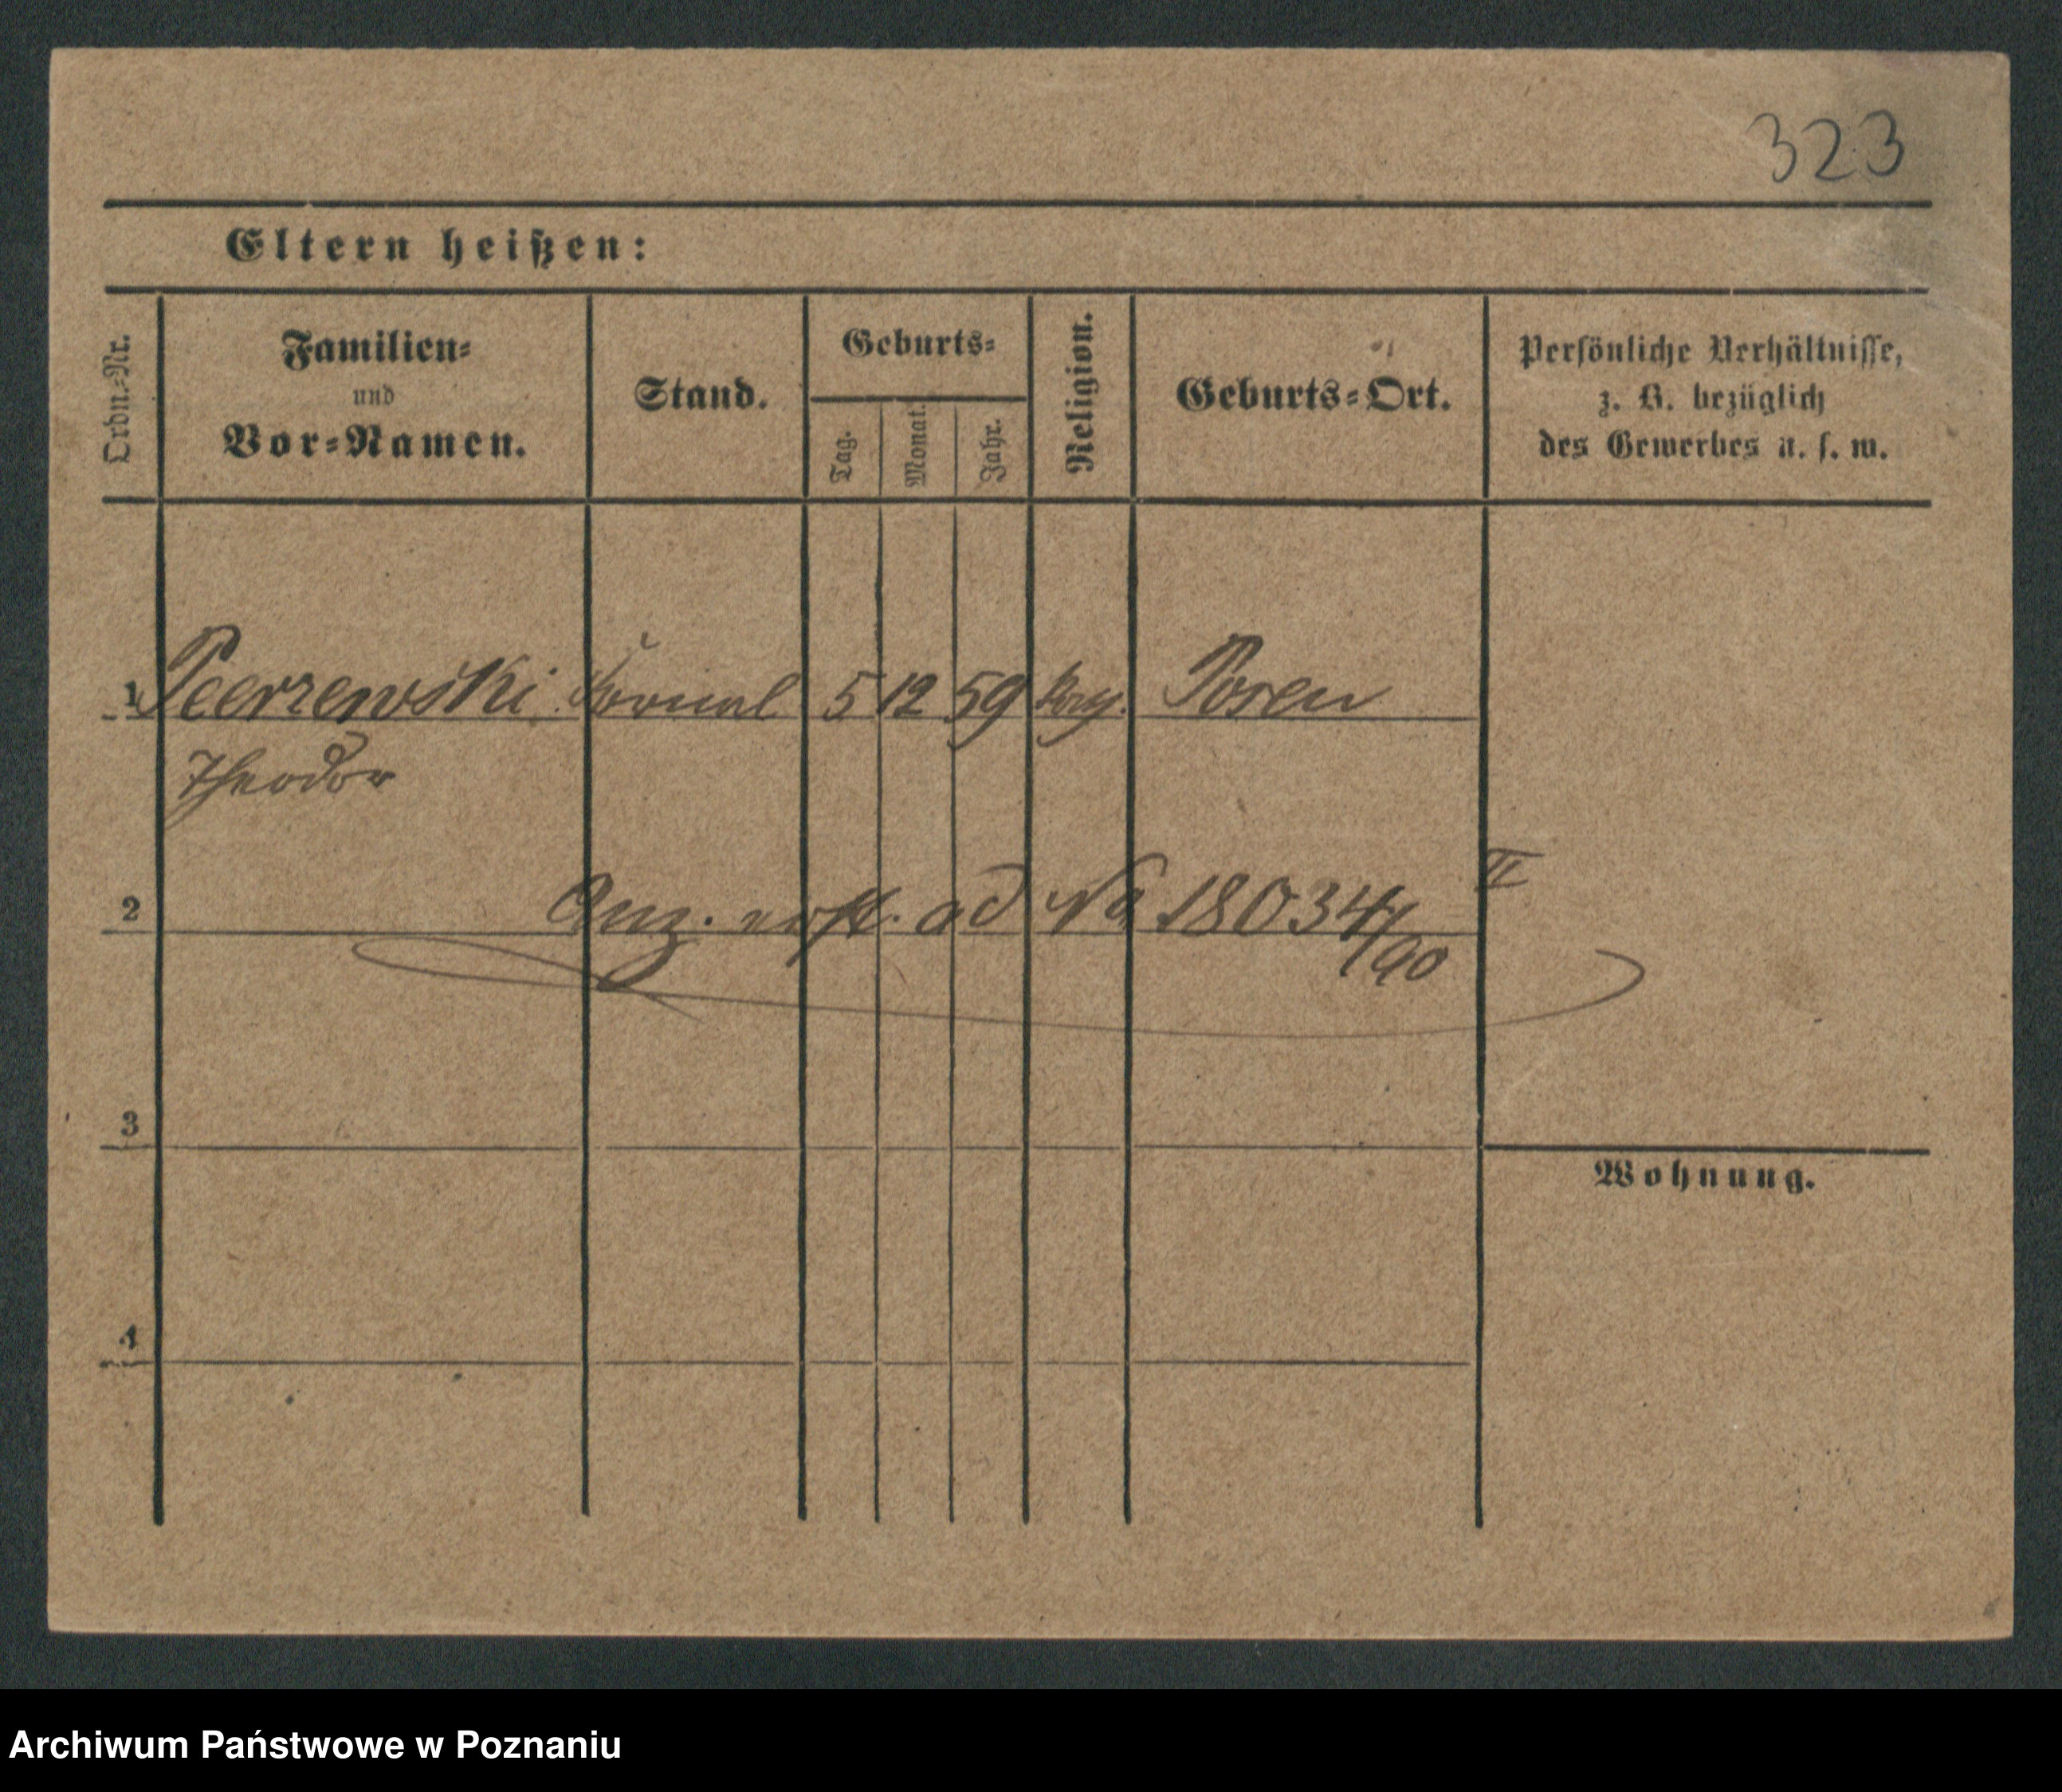 323
Eltern heißen:
Ordn.=Nr.
Familien=
und
Vor=Namen.
Stand.
Geburts=
Tag.
Monat.
Jahr.
Religion.
Geburts=Ort.
Persönliche Verhältnisse,
z. B. bezüglich
des Gewerbes u. s. w.
1 5 12 59 Posen
Theodor
2 Anz. erst. ad No 18034/90 II
3
Wohnung.
4
Archiwum Państwowe w Poznaniu